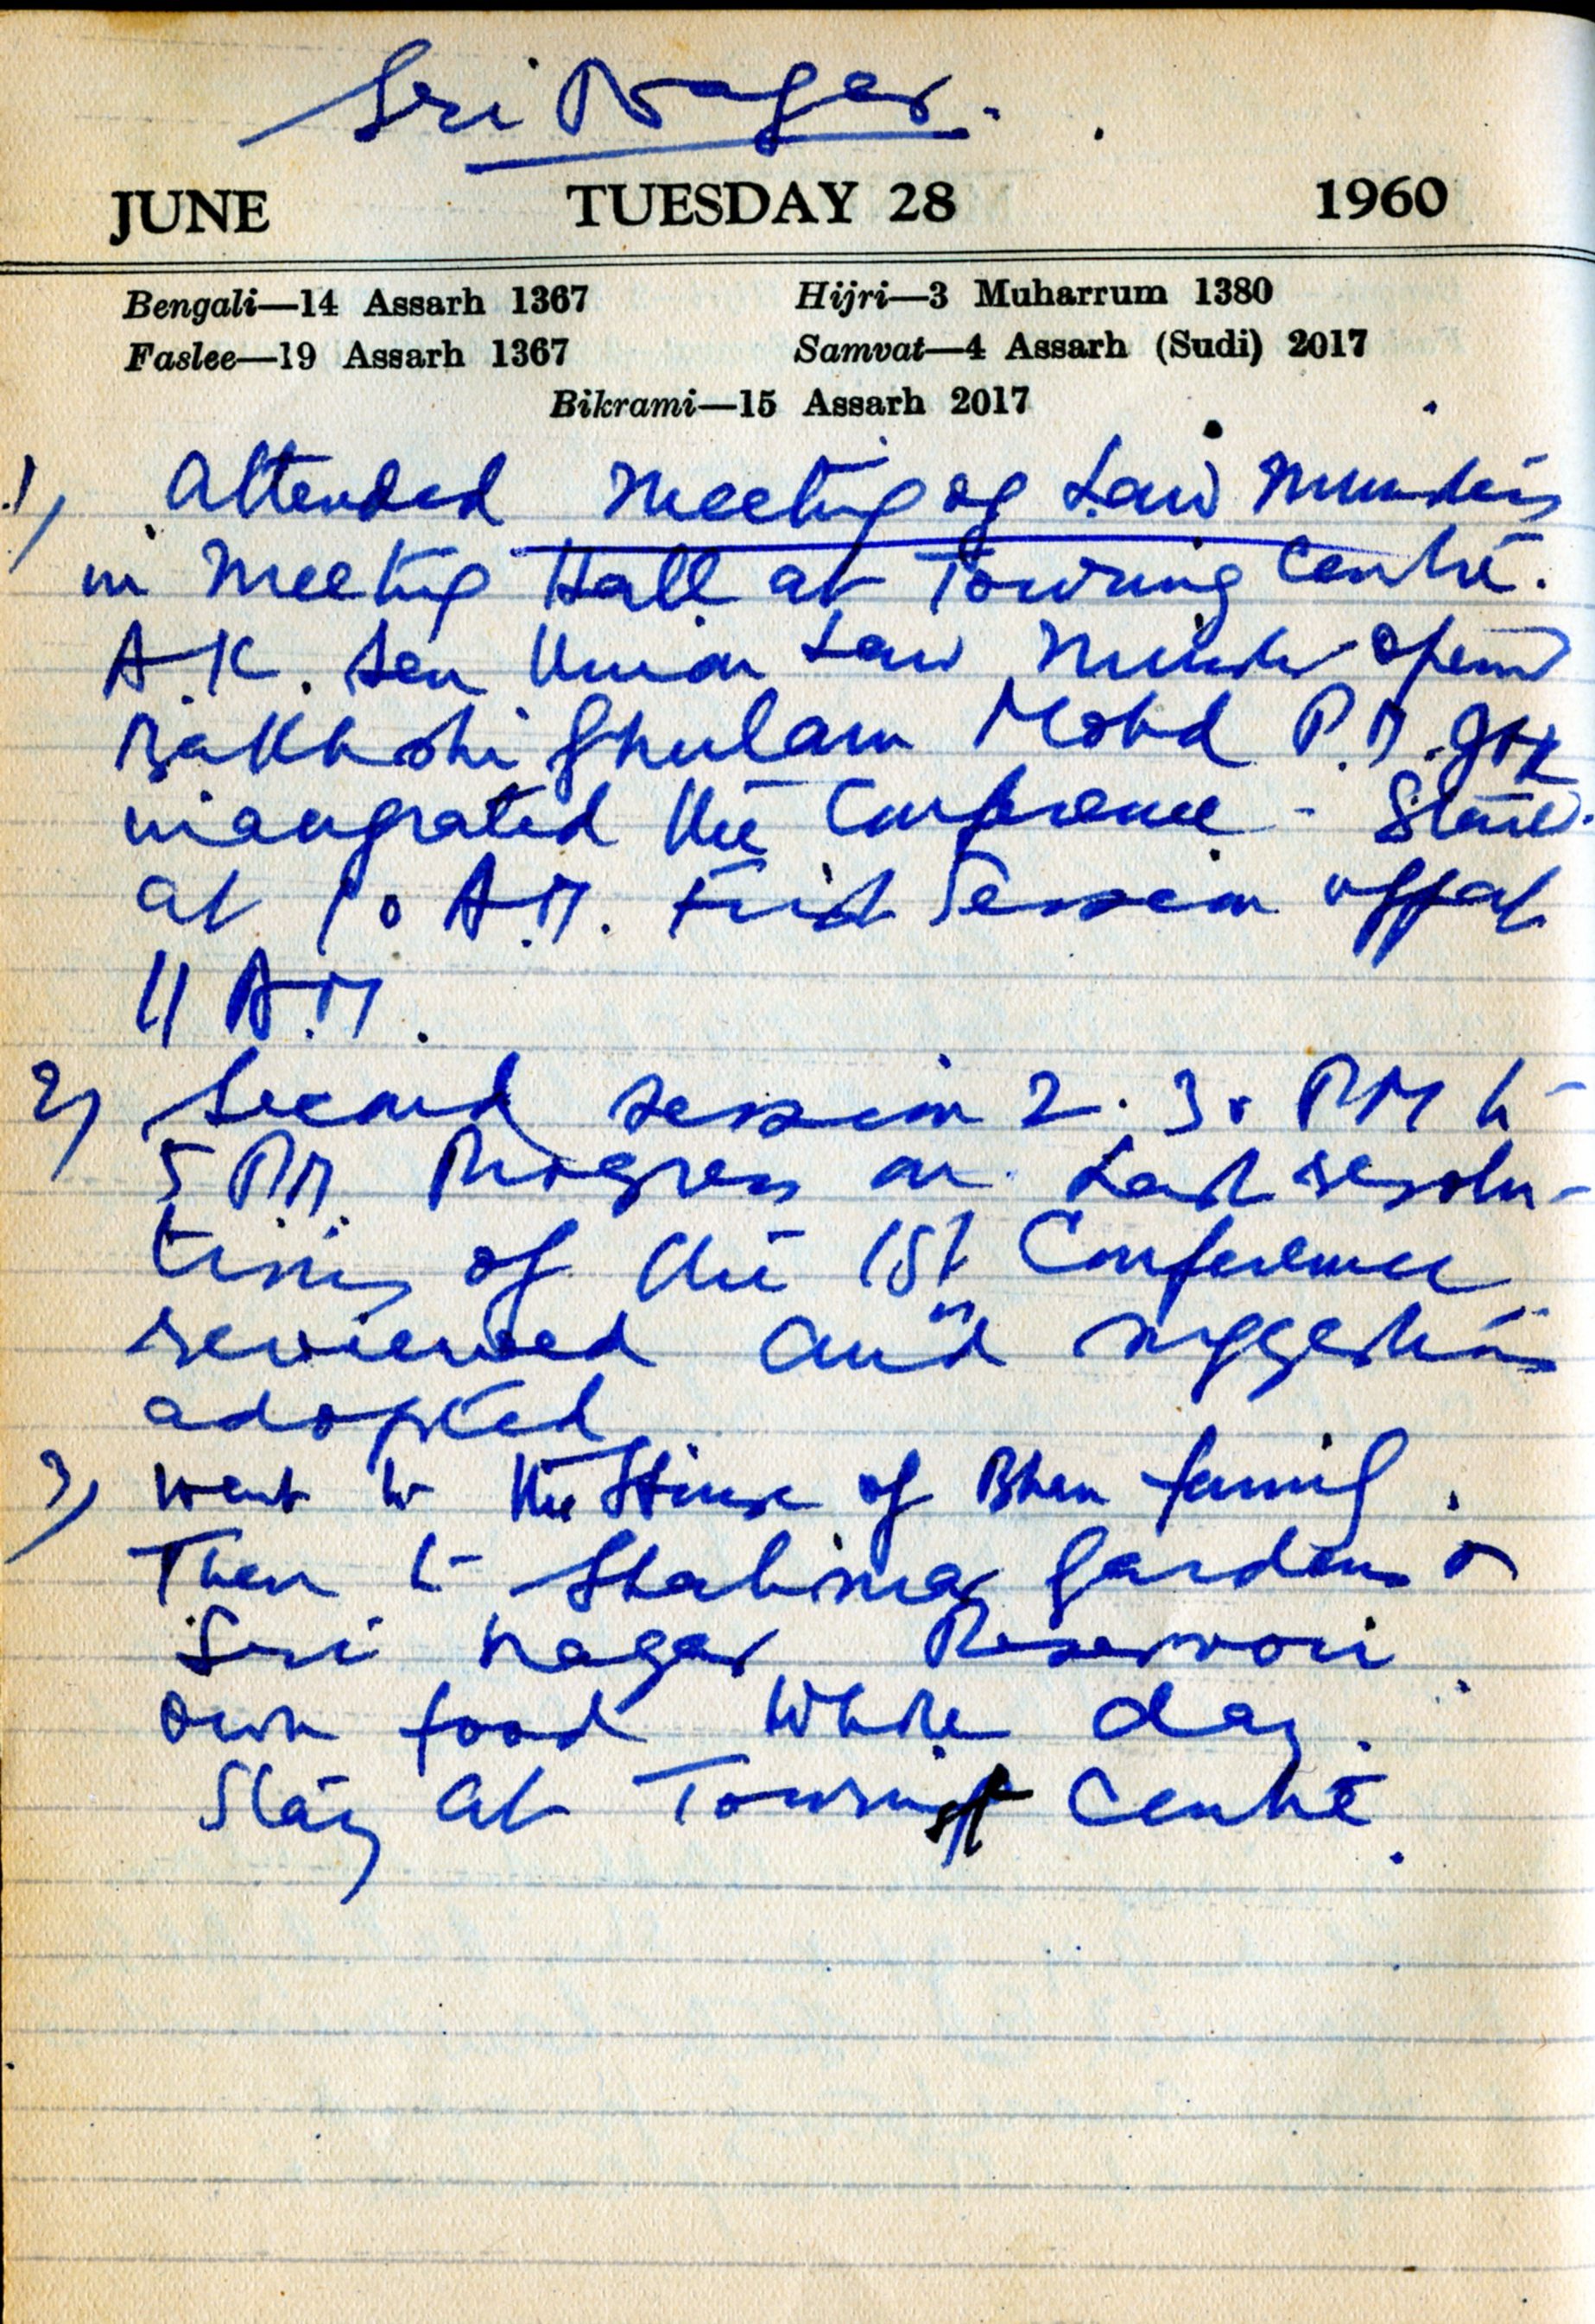 Sri Nagar.
JUNE TUESDAY 28 1960
Bengali—14 Assarh 1367 Hijri—3 Muharrum 1380
Faslee—19 Assarh 1367 Samvat—4 Assarh (Sudi) 2017
Bikrami—15 Assarh 2017
1) Attended Meeting of Law Ministers
in Meeting Hall at Touring Centre.
A.K. Sen Union Law Minister
Bakhshi Ghulam Mohd P.M. J&K
inaugrated the Conference - State
at 10 A.M. First Session
11 A.M.
2) Second session 2.30 PM to
5 PM. Progress on Last resolu-
tions of the 1st Conference
reviewed and suggestions
adopted
3) Went to the House of Bhan family.
Then to Shalimar Gardens &
Sri Nagar Reservoir.
Own food whole day.
Stay at Tourist Centre.